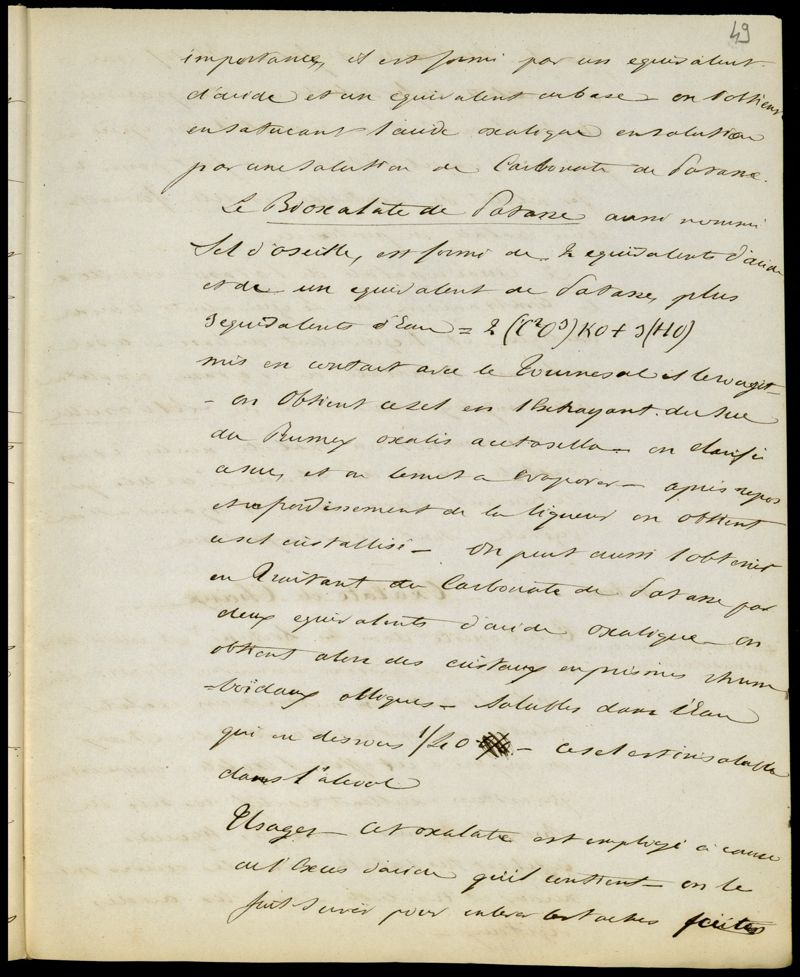 49
importance, il est formé par un equivalent
d'acide et un equivalent de base – on l'obtient
en saturant l'acide oxalique en solution
par une solution de Carbonate de Potasse.
Le Bioxalate de Potasse aussi nommé
Sel d'oseille, est formé de 2 equivalents d'acide
et de un equivalent de Potasse, plus
3 equivalents d'Eau = 2 (C2O3) KO + 3(HO)
mis en contact avec le Tournesol il le rougit –
– on obtient ce sel en l'extrayant du suc
du Rumex oxalis acetosella – on clarifie
ce suc, et on le met a evaporer – après repos
et refroidissement de la liqueur on obtient
ce sel cristallisé – On peut aussi l'obtenir
en traitant du Carbonate de Potasse par
deux equivalents d'acide oxalique on
obtient alors des cristaux en prismes rhom
=boïdaux obliques – solubles dans l'Eau
qui en dessous – ce sel est insoluble
dans l'alcool
Usages – Cet oxalate est employé à cause
de l'Exces d'acide qu'il contient – on le
fait servir pour enlever les taches faites